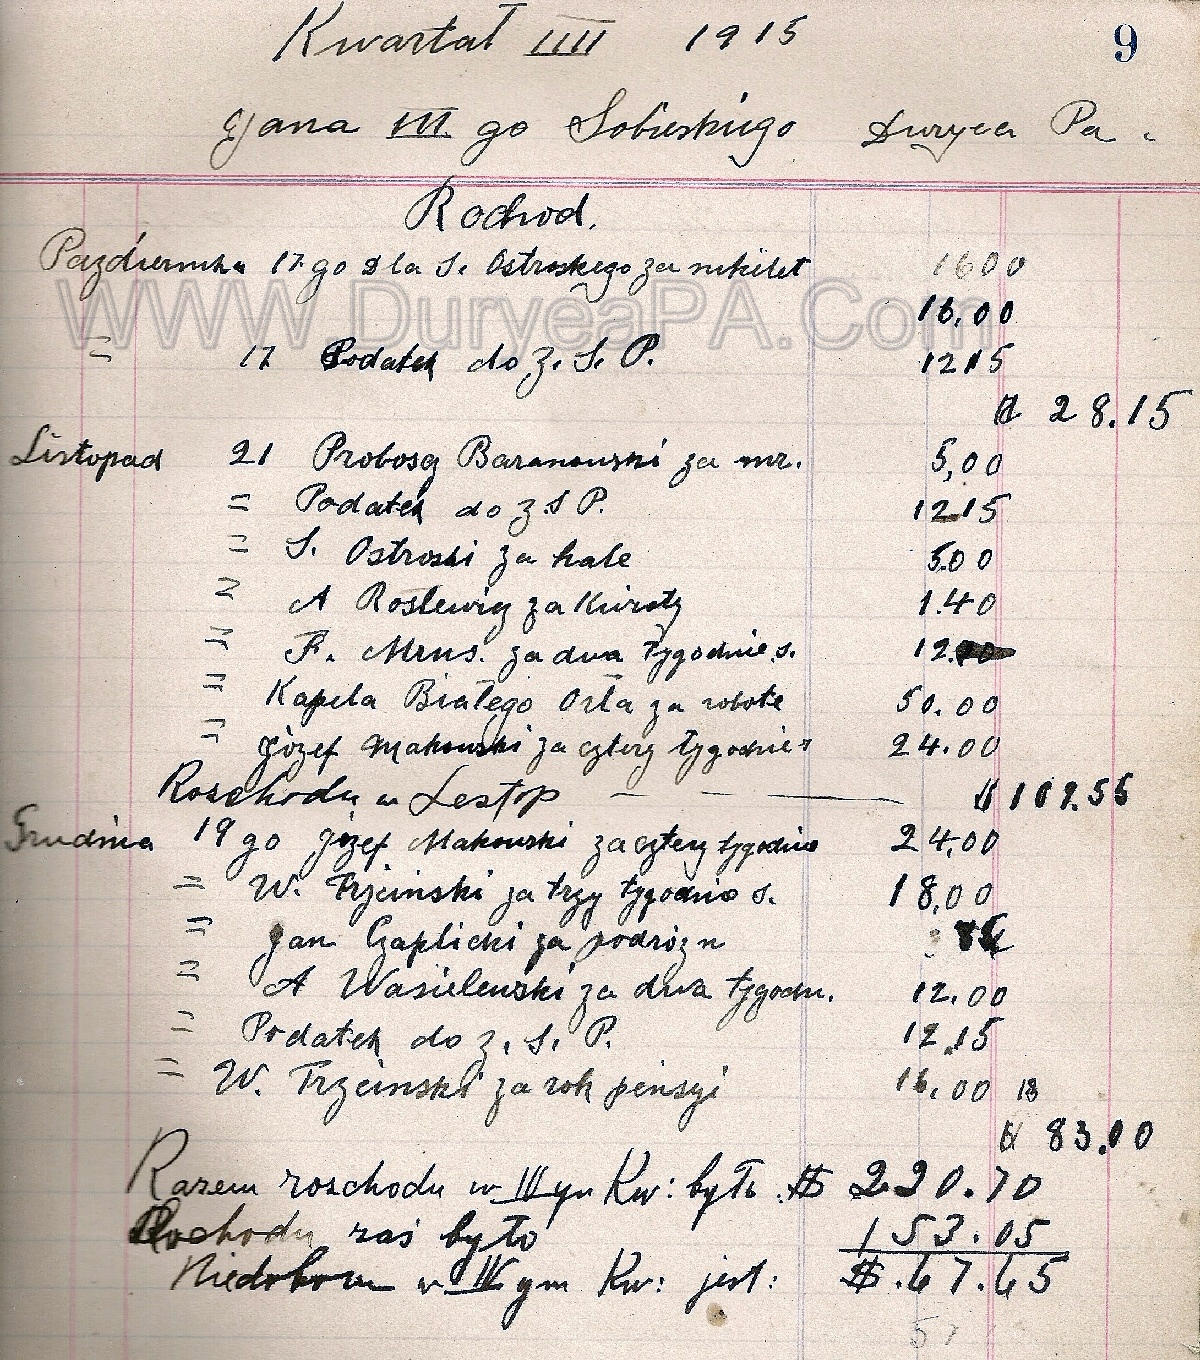 Kwartał IIII 1915 9
Jana III go Sobieskiego Duryea Pa.
Rochod.
Pazdiernika 17 go dla S. Ostroskego za mkilet 1600
WWW.DuryeaPA.Com
16.00
= 17 Podatek do Z. S. P. 12 15
$ 28.15
Listopad 21 Probosq Baranowski za mr. 5,00
= Podatek do Z S P. 12 15
= S. Ostroski za hale 5.00
= A Roslewig za Kwiaty 1.40
= F. Mrus. za dwa tygodnie s. 12.
= Kapela Białego Orła za robote 50.00
= Józef Makowski za cztery tygodnie 24.00
Roschodu w Lestop — — $ 109.55
Grudnia 19 go Józef Makowski za cztery tygodnie 24,00
= W. Trzcinski za trzy tygodnie s. 18,00
= Jan Czaplicki za podrózn
= A Wasielewski za dwa tygodn. 12.00
= Podatek do Z. S. P. 12.15
= W. Trzcinski za rok pensyi 16.00 18
$ 83.00
Razem roschodu w IV ym Kw: było $ 220.70
Dochodu zaś było 153.05
Niedoboru w IV ym Kw: jest: $.67.65
57